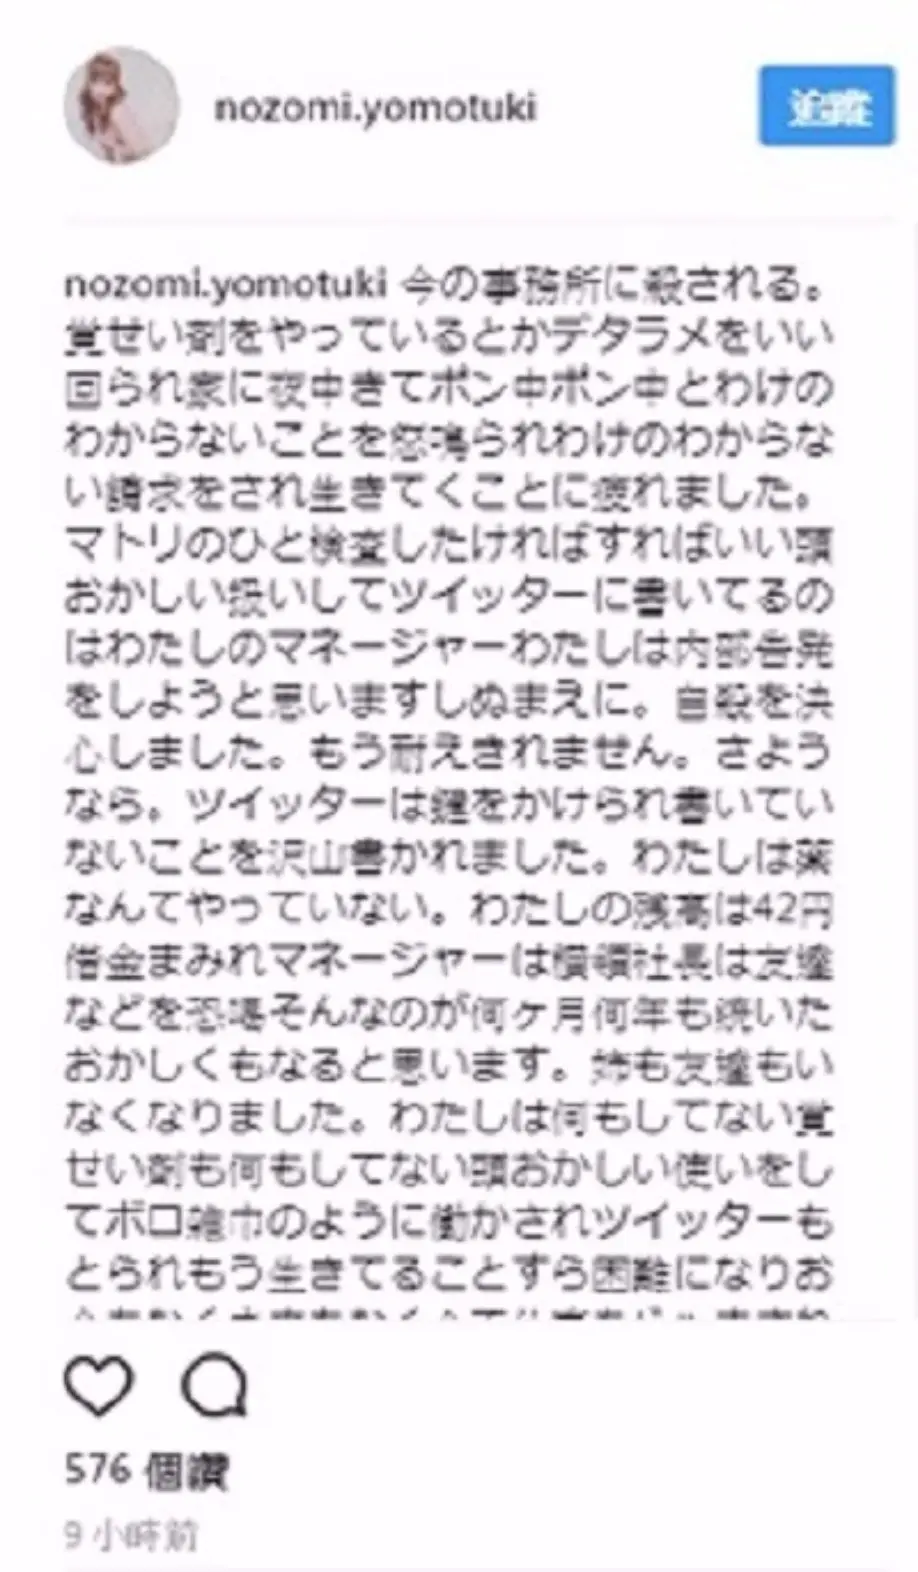 nozomi.yomotuki
追蹤
nozomi.yomotuki 今の事務所に殺される。
覚せい剤をやっているとかデタラメをいい
回られ家に夜中きてポン中ポン中とわけの
わからないことを怒鳴られわけのわからな
い請求をされ生きてくことに疲れました。
マトリのひと検査したければすればいい頭
おかしい扱いしてツイッターに書いてるの
はわたしのマネージャーわたしは内部告発
をしようと思いますしぬまえに。自殺を決
心しました。もう耐えきれません。さよう
なら。ツイッターは鍵をかけられ書いてい
ないことを沢山書かれました。わたしは薬
なんてやっていない。わたしの残高は42円
借金まみれマネージャーは横領社長は友達
などを恐喝そんなのが何ヶ月何年も続いた
おかしくもなると思います。姉も友達もい
なくなりました。わたしは何もしてない覚
せい剤も何もしてない頭おかしい使いをし
てボロ雑巾のように働かされツイッターも
とられもう生きてることすら困難になりお
576 個讚
9 小時前